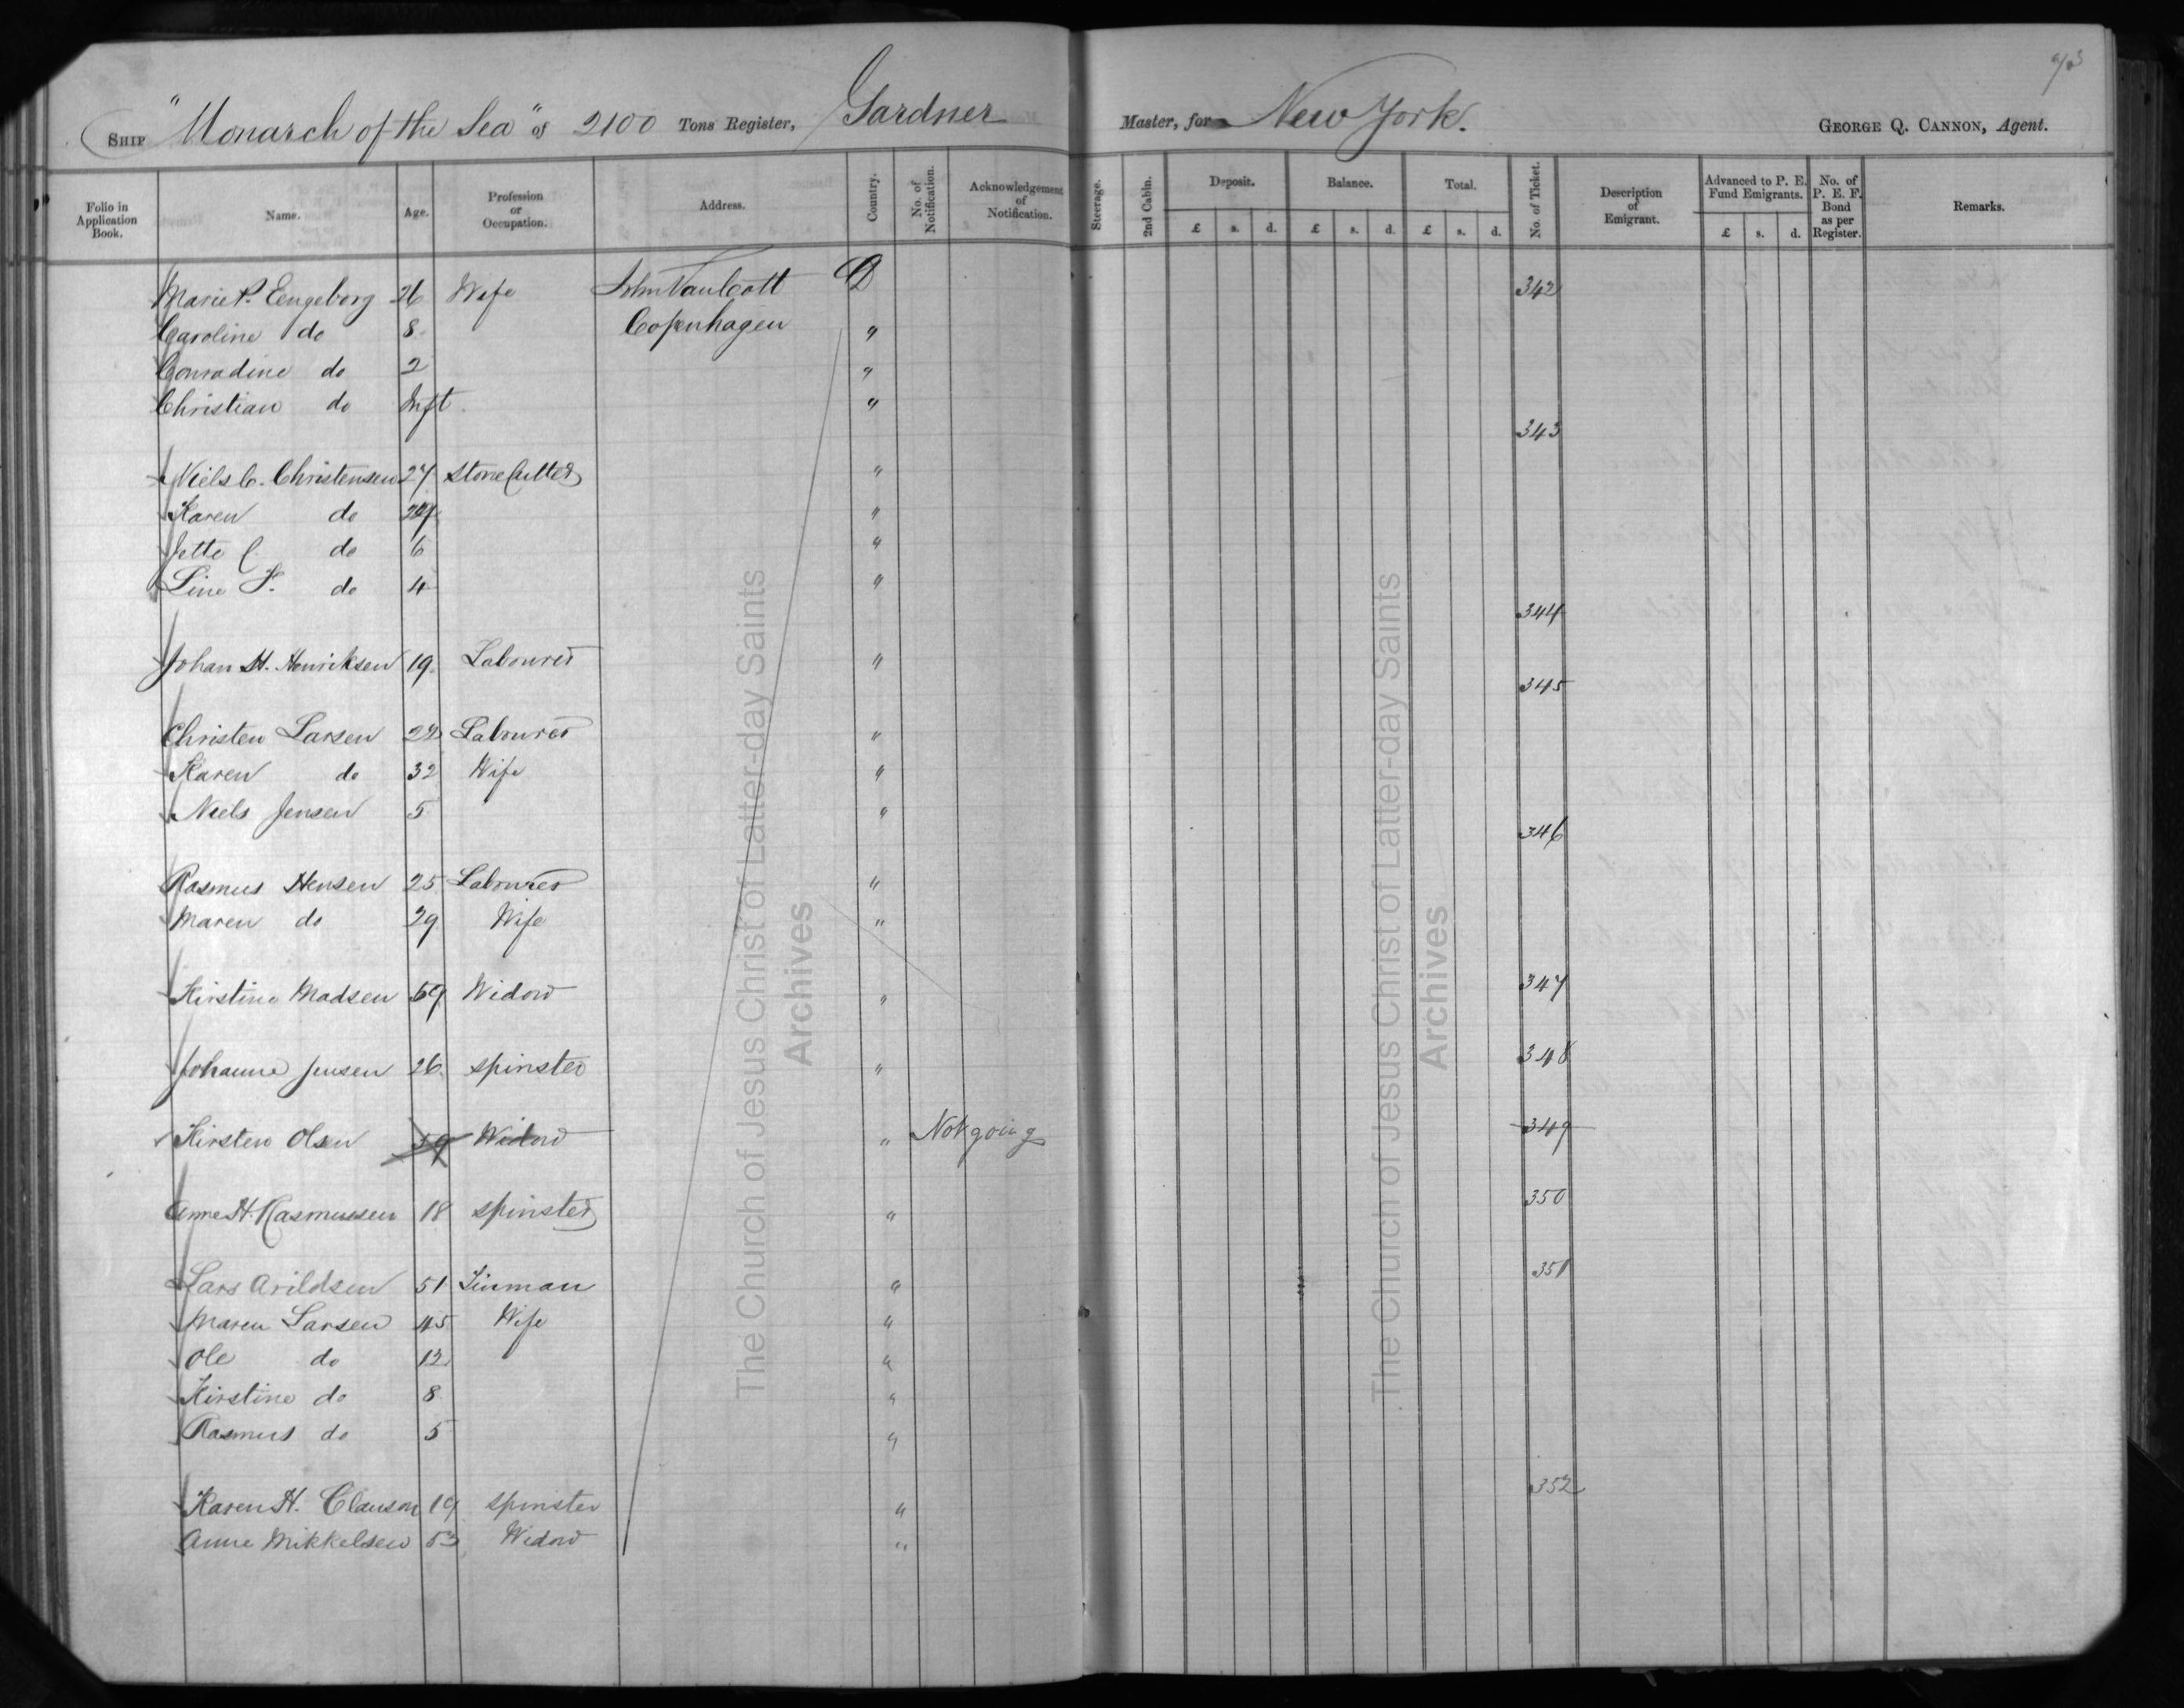 Ship "Monarch of the Sea" of 2100 Tons Register, Gardner Master, for New York. George Q. Cannon, Agent.
Folio in Application Book. Name. Age. Profession or Occupation. Address. Country. No. of Notification. Acknowledgement of Notification. Steerage. 2nd Cabin. Deposit. Balance. Total. No. of Ticket. Description of Emigrant. Advanced to P. E. Fund Emigrants. No. of P. E. F. Bond as per Register. Remarks.
£ s. d. £ s. d. £ s. d. £ s. d.
Marie P. Eengeborg 26 Wife John Van Cott D 342
Caroline do 8 Copenhagen "
Conradine do 2 "
Christian do Inft. "
343
Niels C. Christensen 27 Stone Cutter "
Karen do "
Jette C. do 6 "
Line F. do 4 "
344
Johan H. Henriksen 19 Labourer "
345
Christen Larsen 22 Labourer "
Karen do 32 Wife "
Niels Jensen 5 "
346
Rasmus Hensen 25 Labourer "
Maren do 29 Wife "
Kirstine Madsen 59 Widow " 347
Johanne Jensen 26 spinster " 348
Kirsten Olsen 59 Widow " Not going 349
Anne H. Rasmussen 18 spinster " 350
Lars Arildsen 51 Tinman " 351
Maren Larsen 45 Wife "
Ole do 12 "
Kirstine do 8 "
Rasmus do 5 "
352
Karen H. Clauson 19 spinster "
Anne Mikkelsen 53 Widow "
The Church of Jesus Christ of Latter-day Saints
Archives
The Church of Jesus Christ of Latter-day Saints
Archives